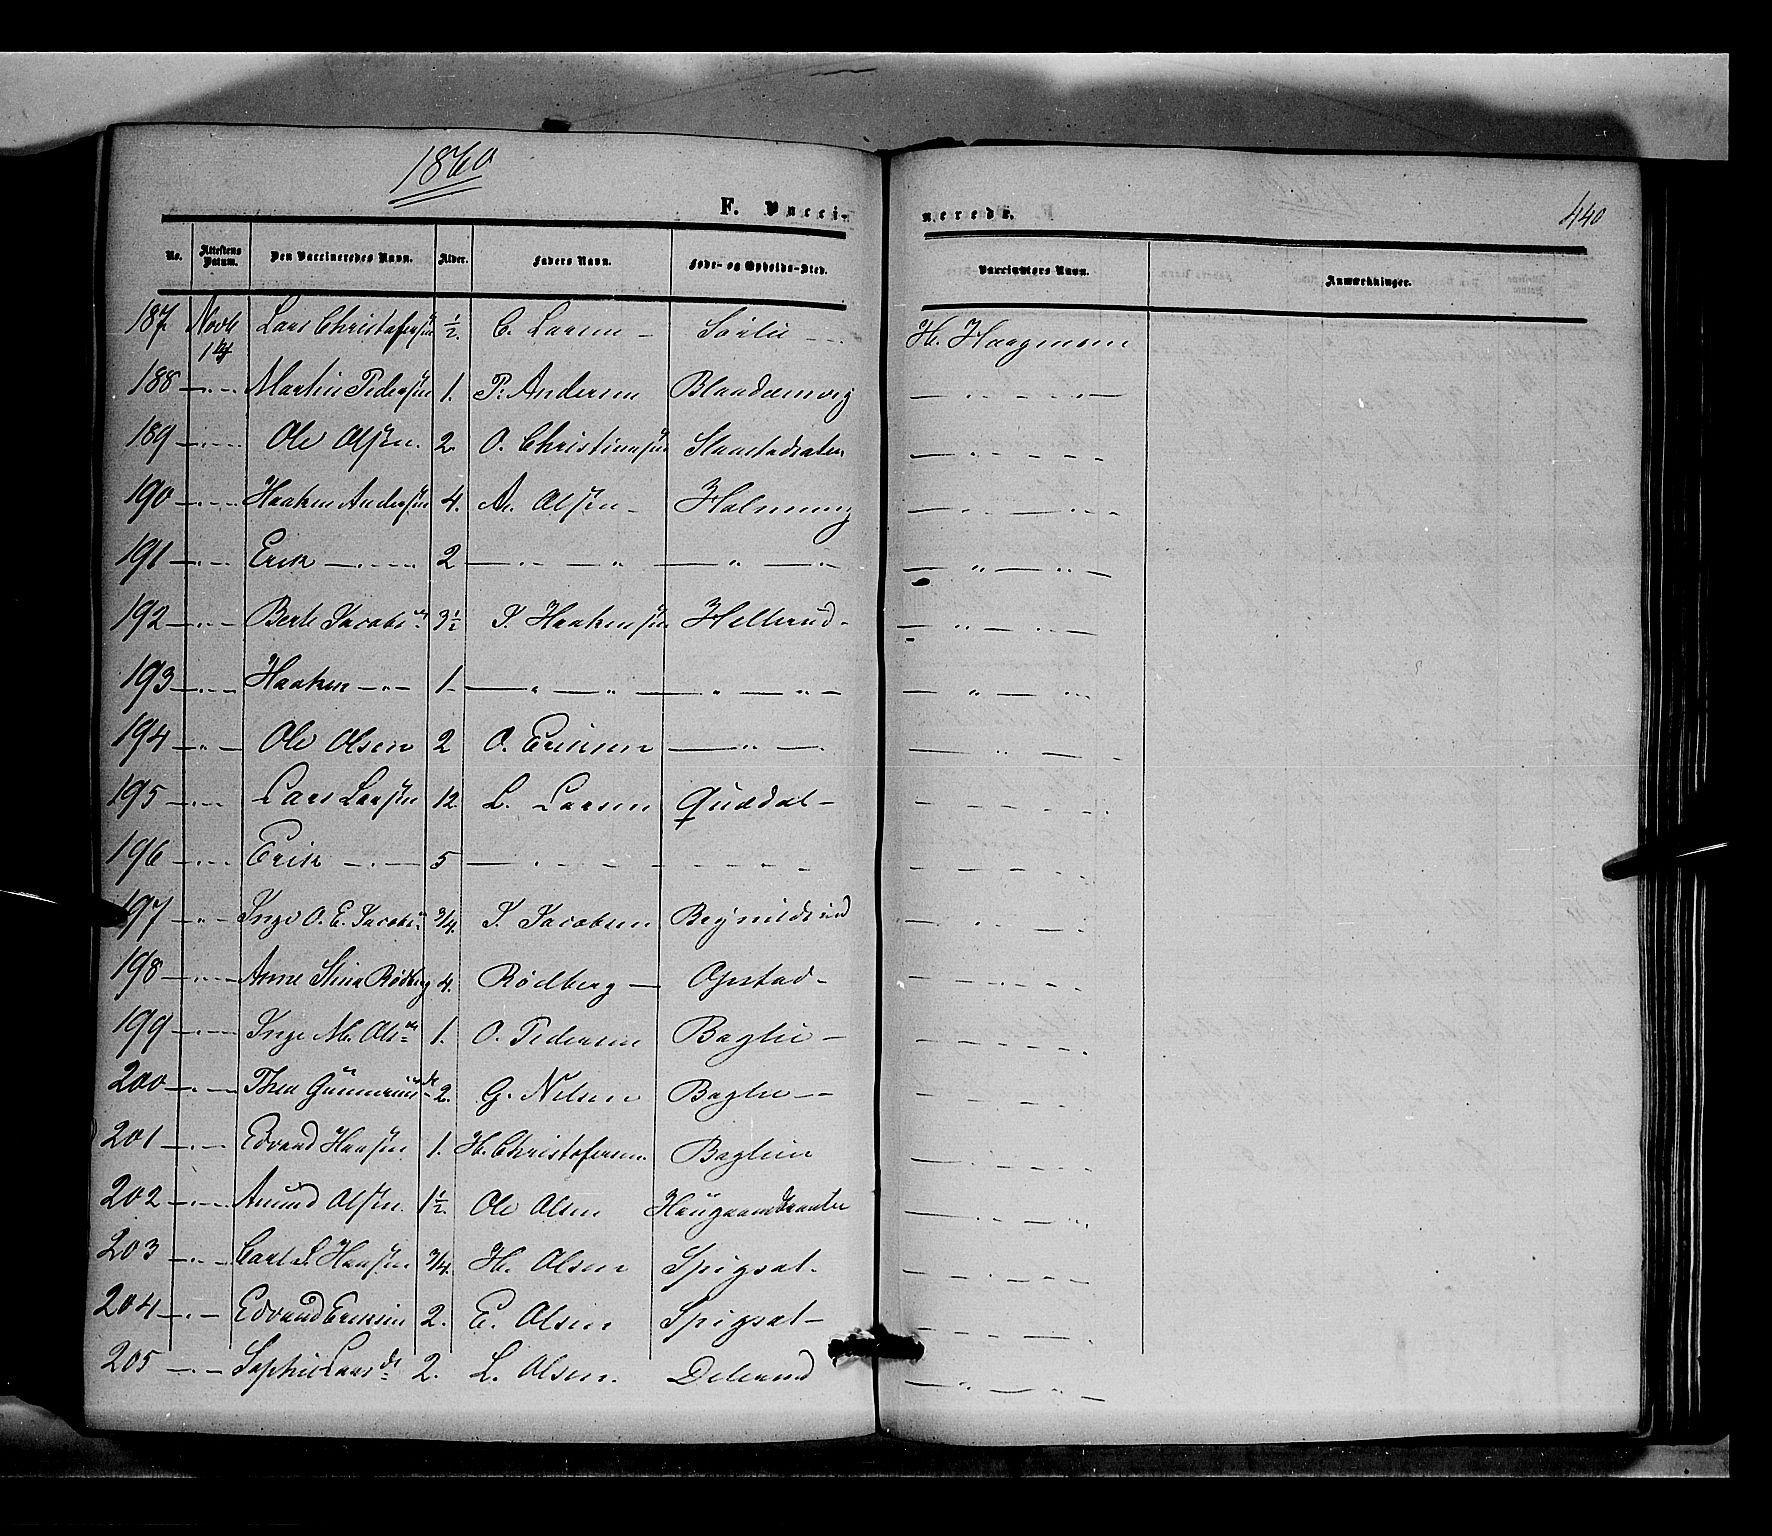 1860
F. Vacci- nerede. 440
No. Attestens Datum. Den Vaccineredes Navn. Alder. Faders Navn. Føde- og Opholds-Sted. Vaccinators Navn. Anmærkninger.
187 Novb 14 Lars Christofersen 1/2. C. Larsen - Sørlie - H. Haagensen
188 — " — Martin Pedersen 1. P. Andersen — " —
189 — " — Ole Olsen. 2. O. Christiansen — " —
190 — " — Haaken Andersen 4. A. Olsen - — " —
191 — " — Erik — " — 2 — " — " — " — " — " — " —
192 — " — Berte Jacobs 3 1/2 J. Haakensen Hellerud - — " — " —
193 — " — Haaken — " — 1 - — " — " — " — " — " — " —
194 — " — Ole Olsen 2 O. Eriksen — " — — " —
195 — " — Lars Larsen 12 L. Larsen Quædal - — " —
196 — " — Erik — " — 5 — " — — " — — " —
197 — " — Inge O. E. Jacobs 3/4. J. Jacobsen — " —
198 — " — Anne Stina Rødberg 4. Rødberg — Opstad - — " —
199 — " — Inge M. Ols 1. O. Pedersen Baglie - — " —
200 — " — Thea Gunnerius dr 2. G. Nilsen Baglie - — " —
201 — " — Edvard Hansen 1. H. Christofersen Baglien — " —
202 — " — Amund Olsen. 1 1/2. Ole Olsen — " —
203 — " — Carl Hansen 3/4. H. Olsen Spigsæt. — " —
204 — " — Edvard Eriksen 2. E. Olsen Spigsæt - — " —
205 — " — Sophie Lars dr 2. L. Olsen. — " —